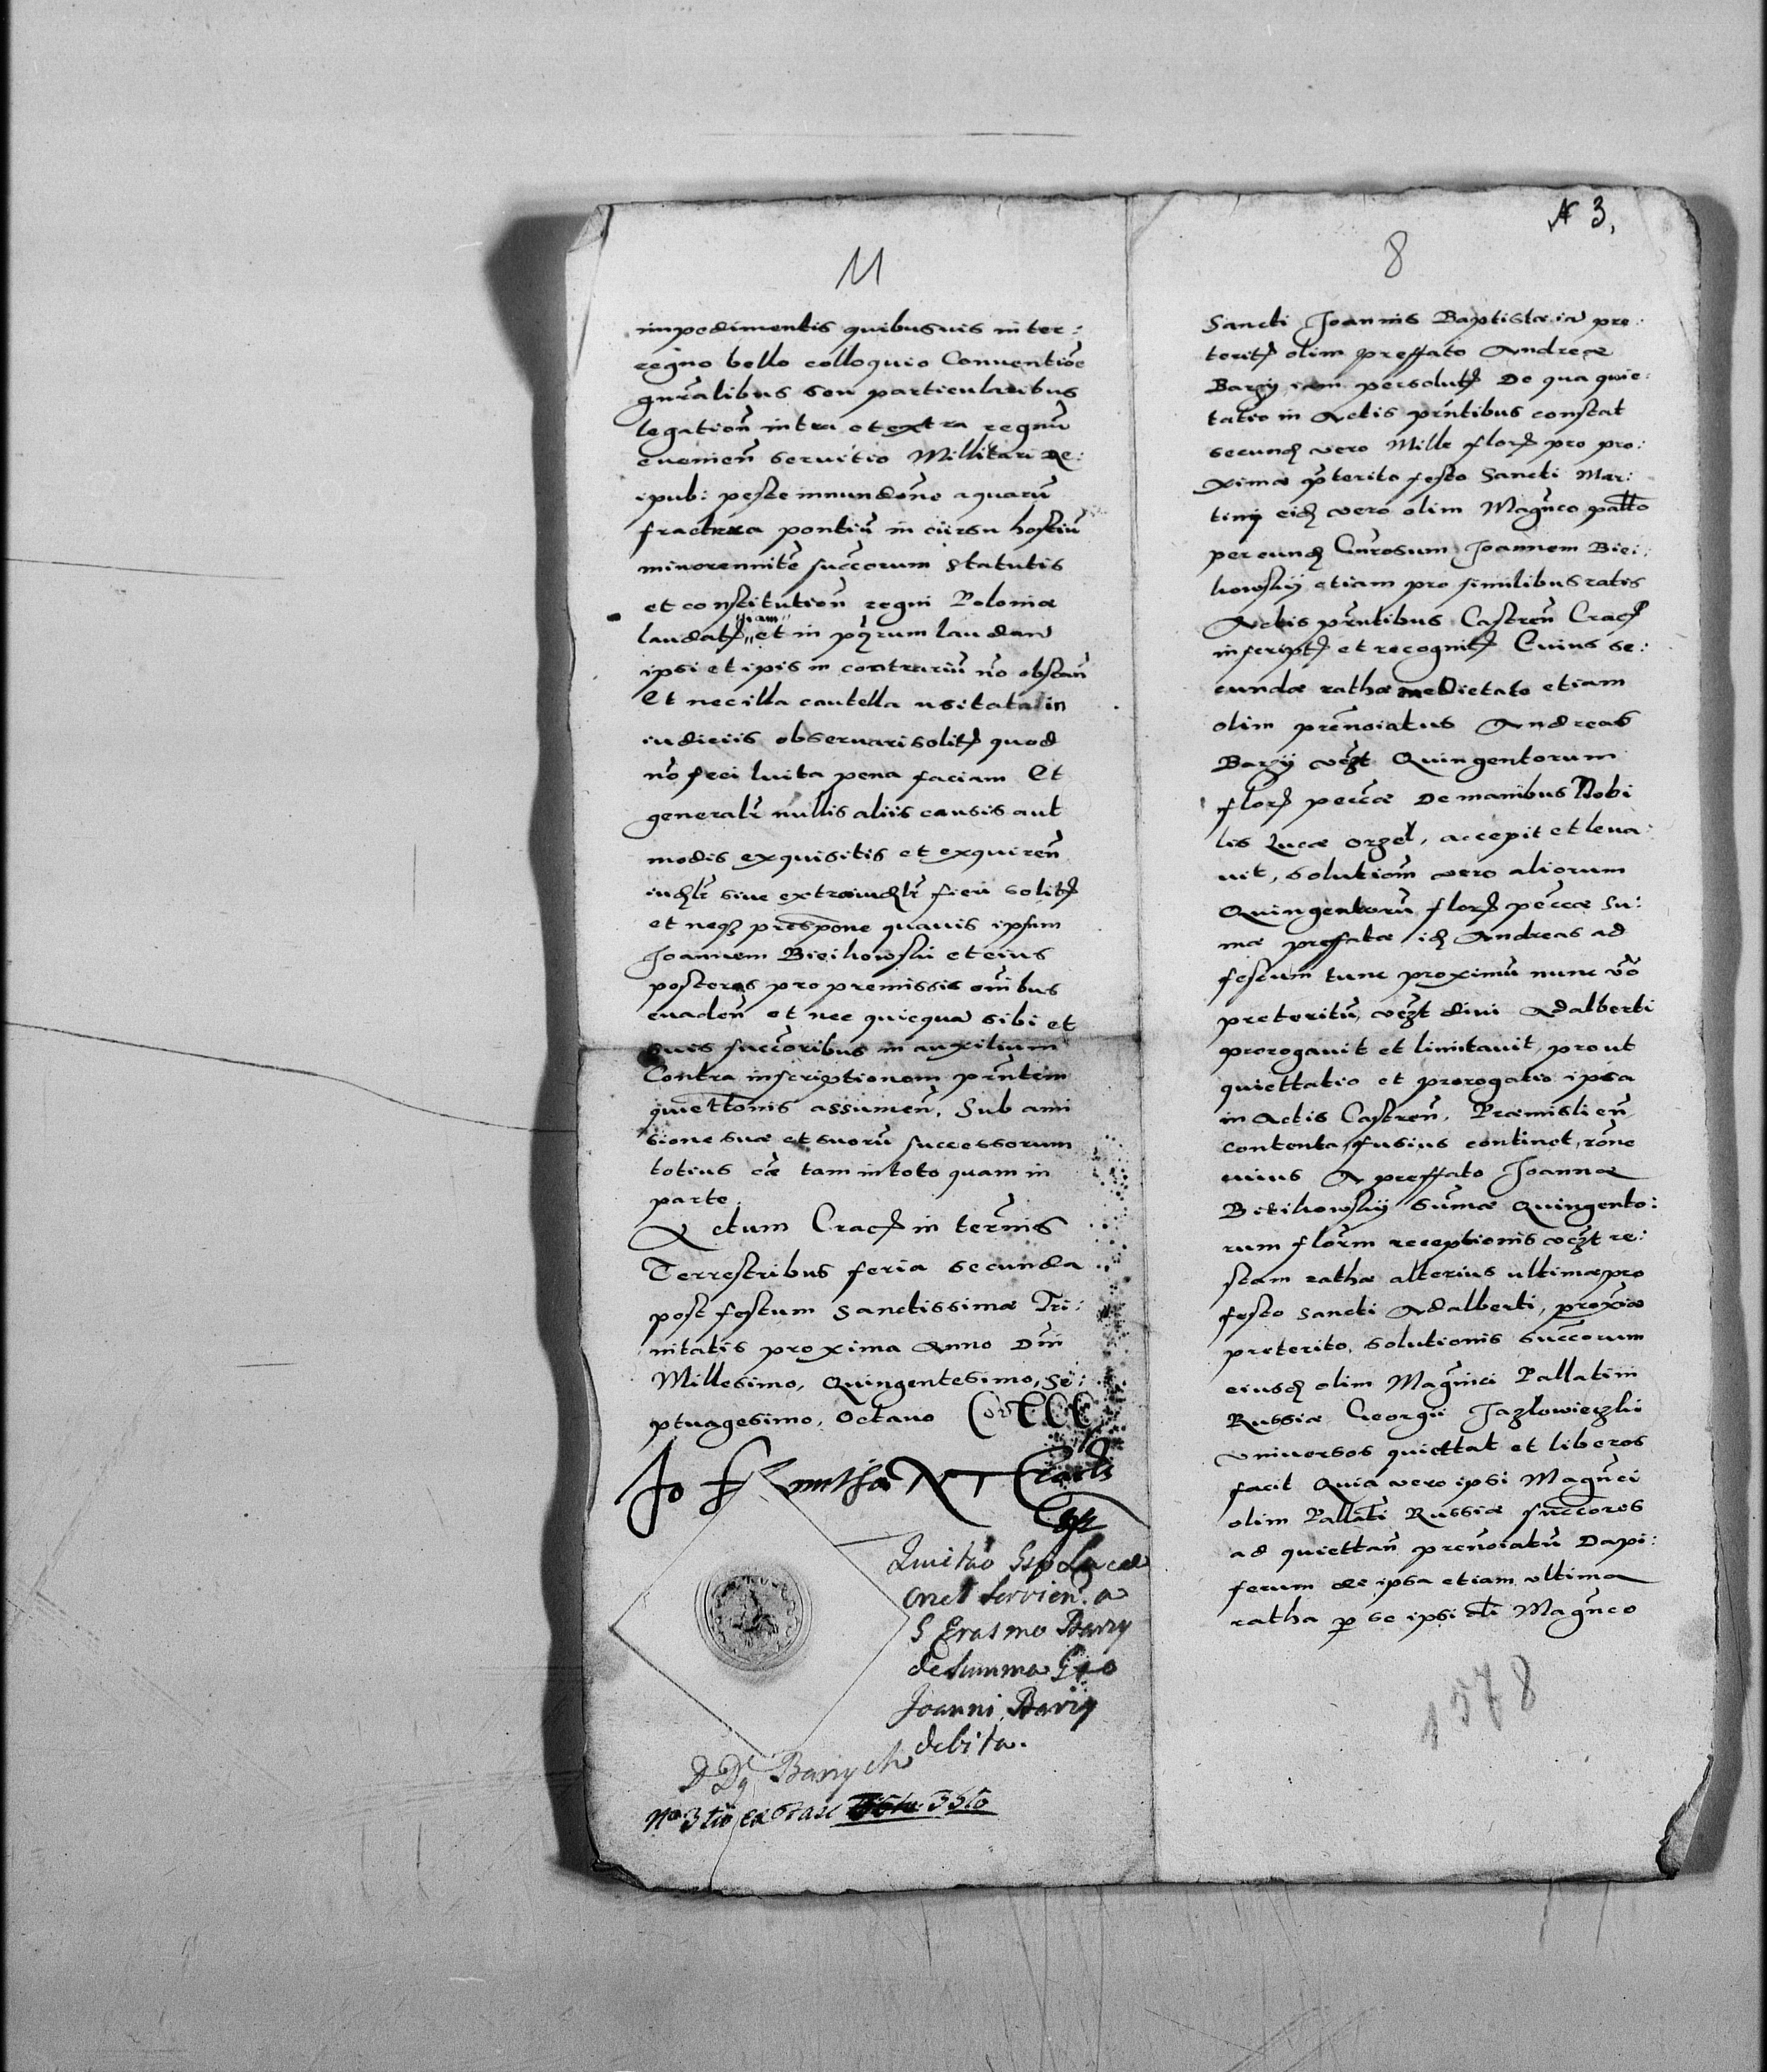 11
impedimentis quibusuis inter:
regno bello colloquio Conuentiōe
gnr̄alibus seu particularibus
legation̄ intra et extra regnū
euenien̄ seruitio Millitari Re:
ipub: peste innundōne aquarū
fractura pontiū in cursu hostiū
minorennitē succ̄orum statutis
et constitution̄ regni Poloniæ
laudatꝭ iam et in poꝛ̄rum laudan̄
ipsi et ipis in contrariū nō obstan̄
Et nec illa cautella usitata in
iudiciis obseruari solitꝭ quod
nō feci luita pena faciam Et
generalr̄ nullis aliis causis aut
modis exquisitis et exquiren̄
iudlr̄ siue extraiudlr̄ fieri solitꝭ
et neqꝫ prēspōne quauis ipsum
Joannem Bieihowski et eius
posteros pro premissis oībus
euaden̄ et nec quicquā sibi et
suis succ̄oribus in auxilium
Contra inscriptionem prn̄tem
quiettōnis assumen̄, Sub ami
sione suæ et suorū successorum
totius cǣ tam in toto quam in
parte
Actum Cracꝭ in terīnis
Terrestribus feria secunda
post festum Sanctissimæ Tri:
nitatis proxima Anno Dn̄i
Millesimo, Quingentesimo, Se:
ptuagesimo, Octauo
Quitāo Gsp Lucæ
orzel servien. a
G Erasmo Barzy
de summa Gso
Joanni Barzy
debita.
D Dg Barzych
Nº 3tio ex
№ 3,
8
Sancti Joannis Baptistæ iā pre:
teritꝭ olim preffato Andreæ
Barzy iam persolutꝭ De qua quie:
tatio in Actis prn̄tibus constat
secundꝭ vero Mille florꝭ pro pro:
ximæ p̄terito festo Sancti Mar:
tinij eidꝭ vero olim Magn̄co pallto
per eundꝭ Gnrosum Joannem Biei:
howskij etiam pro similibus ratis
Actis prn̄tibus Castren̄ Cracꝭ
inscriptꝭ et recognitꝭ Cuius se:
cundæ rathæ medietate etiam
olim prēnoīatus Andreas
Barzij vezt Quingentorum
florꝭ pecc̄æ De manibus Nobi
lis Lucæ Orzel, accepit et leua:
uit, solution̄ vero aliorum
Quingentorū florꝭ pecc̄æ Su:
mæ preffatæ idꝭ Andreas ad
festum tunc proximū nunc vō
preteritū, vezt diui Adalberti
prorogauit et limitauit, prout
quiettatio et prorogatio ipsa
in Actis Castren̄, Præmislien̄
contenta, fusius continet, rōne
cuius A preffato Joanne
Bieihowskij sum̄æ Quingento:
rum flor̄m receptionis vezt re:
stam rathæ alterius ultimæ pro
festo Sancti Adalberti, proxīæ
preterito, solutionis succ̄orum
eiusdꝭ olim Magn̄ici Pallatini
Russiæ Georgii Jazlowieczki
vniuersos quiettat et liberos
facit Quia vero ipsi Magn̄ci
olim Pallati Russiæ succ̄ores
ad quiettan̄ prēnoīatū Dapi:
ferum de ipsa etiam vltima
ratha p se ipsi dti Magn̄co
1578